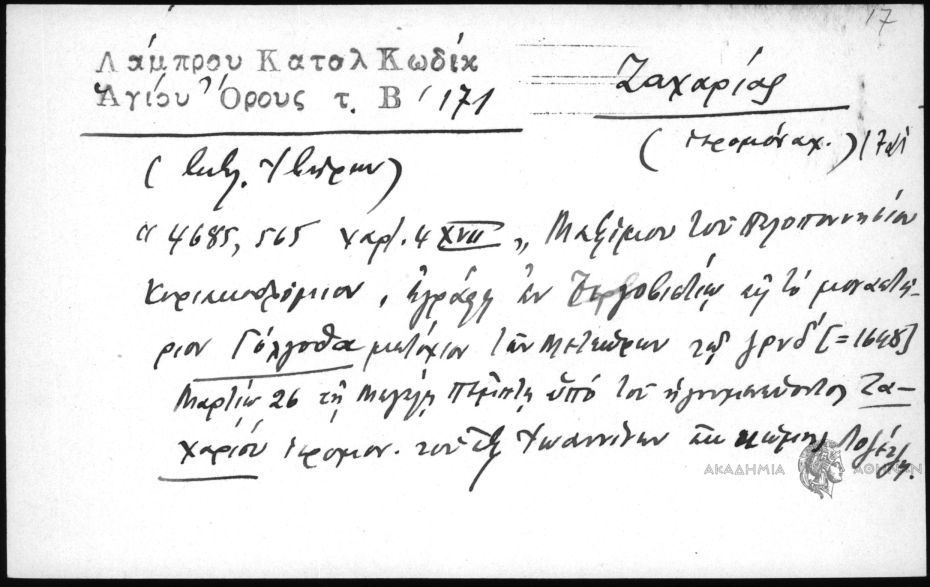 17
Λάμπρου Καταλ Κωδίκ
Ἁγίου Ὄρους τ. Β' 171
Ζαχαρίας
(ἱερομόναχ.)
(Βιβλ. Ἰβήρων)
"4685, 565 χαρτ. 4 XVII „ Μαξίμου τοῦ Πελοποννησίου
Κυριακοδρόμιον, ἐγράφη ἐν Τεργοβιστίῳ εἰς τὸ μοναστή-
ριον Γόλγοθα μετόχιον τῶν Μετεώρων τῷ ζρνδ' [=1648]
Μαρτίῳ 26 τῇ Μεγάλῃ Πέμπτῃ ὑπὸ τοῦ ἡγουμενεύοντος Ζα-
χαρίου ἱερομον. τοῦ ἐξ Ἰωαννίνων ἐκ κώμης
ΑΚΑΔΗΜΙΑ ΑΘΗΝΩΝ